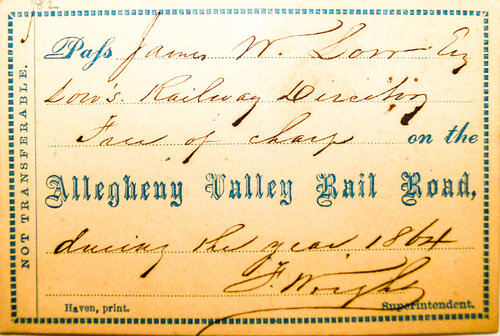 192
Pass James W. Low Esq
Low's Railway Directory
Free of charge on the
Allegheny Valley Rail Road,
during the year 1864
F. Wright
Superintendent.
Haven, print.
NOT TRANSFERABLE.